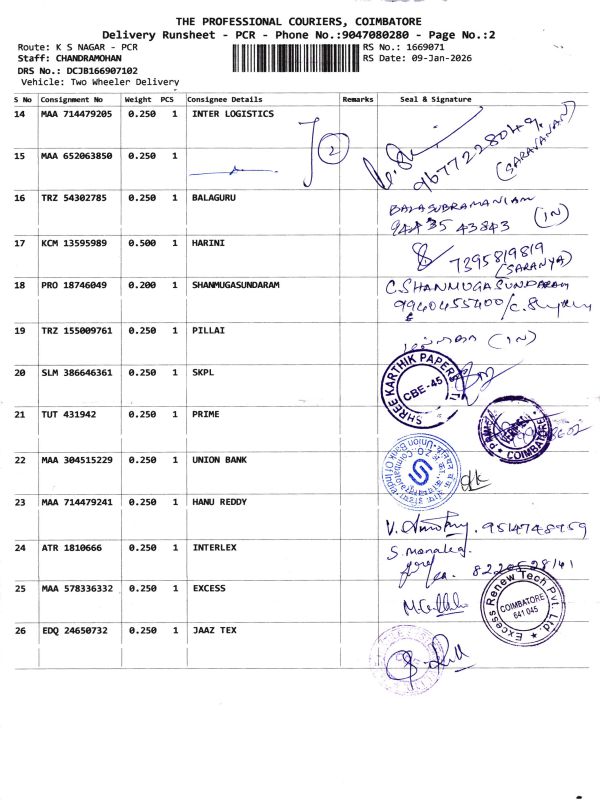 THE PROFESSIONAL COURIERS, COIMBATORE
Delivery Runsheet - PCR - Phone No.:9047080280 - Page No.:2
Route: K S NAGAR - PCR
RS No.: 1669071
Staff: CHANDRAMOHAN
RS Date: 09-Jan-2026
DRS No.: DCJB166907102
Vehicle: Two Wheeler Delivery
S No Consignment No Weight PCS Consignee Details Remarks Seal & Signature
14 MAA 714479205 0.250 1 INTER LOGISTICS
2
9677228049
(SARAVANAN)
15 MAA 652063850 0.250 1
16 TRZ 54302785 0.250 1 BALAGURU
BALASUBRAMANIAM
94435 43843 (IN)
17 KCM 13595989 0.500 1 HARINI
7395819819
(SARANYA)
18 PRO 18746049 0.200 1 SHANMUGASUNDARAM
C.SHANMUGASUNDARAM
9940455400
19 TRZ 155009761 0.250 1 PILLAI
(IN)
20 SLM 386646361 0.250 1 SKPL
SHREE KARTHIK PAPERS
CBE-45
21 TUT 431942 0.250 1 PRIME
COIMBATORE
22 MAA 304515229 0.250 1 UNION BANK
Union Bank Of India
23 MAA 714479241 0.250 1 HANU REDDY
9514748959
24 ATR 1810666 0.250 1 INTERLEX
25 MAA 578336332 0.250 1 EXCESS
Excess Renew Tech Pvt. Ltd.
COIMBATORE
641 045
26 EDQ 24650732 0.250 1 JAAZ TEX